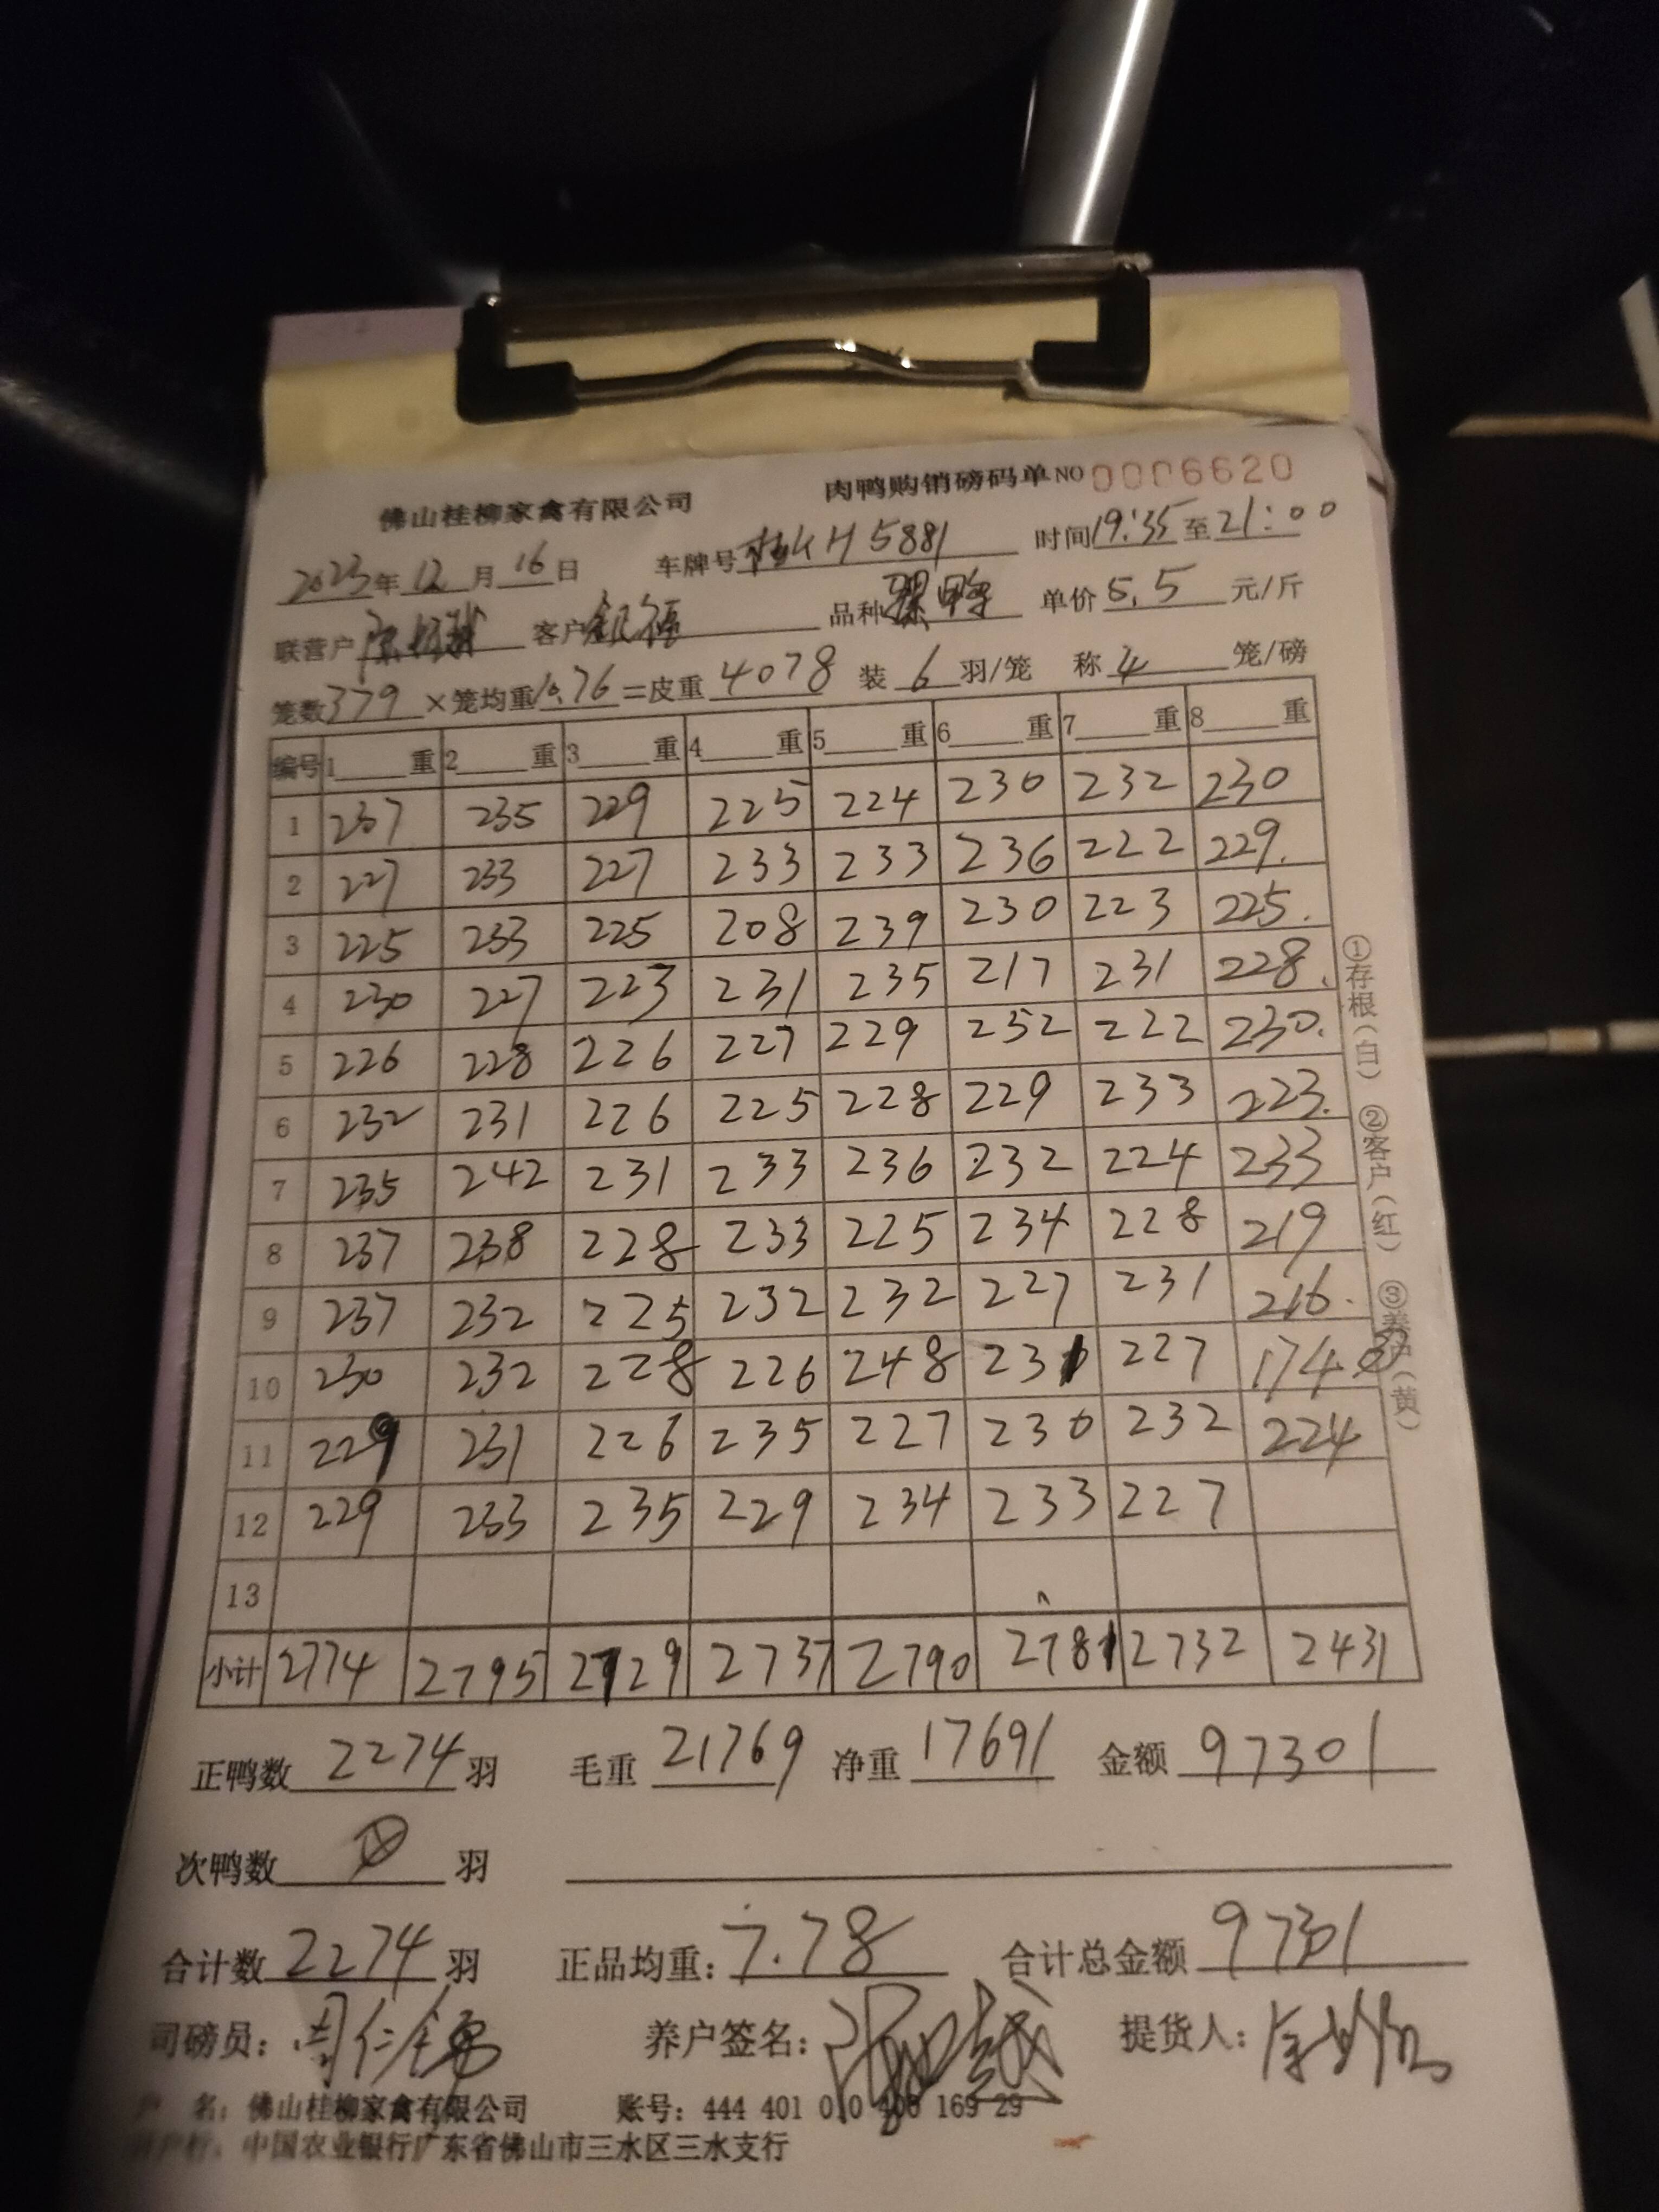 佛山桂柳家禽有限公司 肉鸭购销磅码单 NO 0006620
2023年12月16日 车牌号 桂KH5881 时间19:35至21:00
联营户 客户 银福 品种 单价5.5元/斤
笼数379×笼均重10.76=皮重4078 装6羽/笼 称4笼/磅
编号 1 重 2 重 3 重 4 重 5 重 6 重 7 重 8 重
1 237 235 229 225 224 230 232 230
2 227 233 227 233 233 236 222 229.
3 225 233 225 208 239 230 223 225.
4 230 227 223 231 235 217 231 228.
5 226 228 226 227 229 252 222 230.
6 232 231 226 225 228 229 233 223.
7 235 242 231 233 236 232 224 233
8 237 238 228 233 225 234 228 219
9 237 232 225 232 232 227 231 216.
10 230 232 228 226 248 231 227 174
11 229 231 226 235 227 230 232 224
12 229 233 235 229 234 233 227
13
小计 2774 2795 2729 2737 2790 2781 2732 2431
正鸭数2274羽 毛重21769 净重17691 金额97301
次鸭数 羽
合计数2274羽 正品均重:7.78 合计总金额97301
司磅员: 养户签名: 提货人:
户 名:佛山桂柳家禽有限公司 账号:444 401 010 400 169 29
开户行:中国农业银行广东省佛山市三水区三水支行
①存根(白) ②客户(红) ③养户(黄)